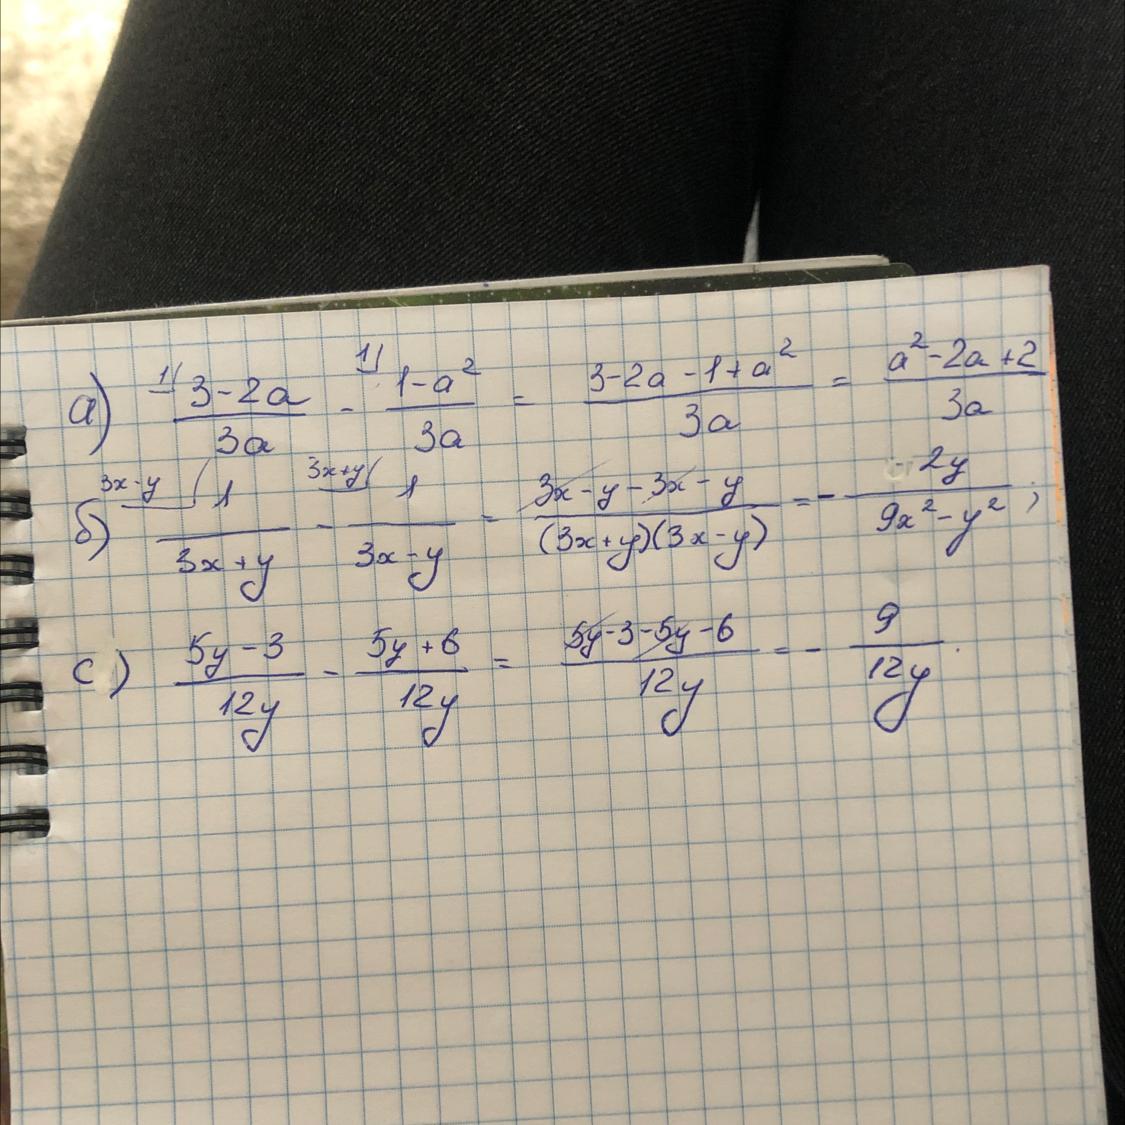 а) 1) (3-2a)/(3a) - 1) (1-a²)/(3a) = (3-2a-1+a²)/(3a) = (a²-2a+2)/(3a)
б) 3x-y) 1/(3x+y) - 3x+y) 1/(3x-y) = (3x-y-3x-y)/((3x+y)(3x-y)) = - 2y/(9x²-y²);
c) (5y-3)/(12y) - (5y+6)/(12y) = (5y-3-5y-6)/(12y) = - 9/(12y).